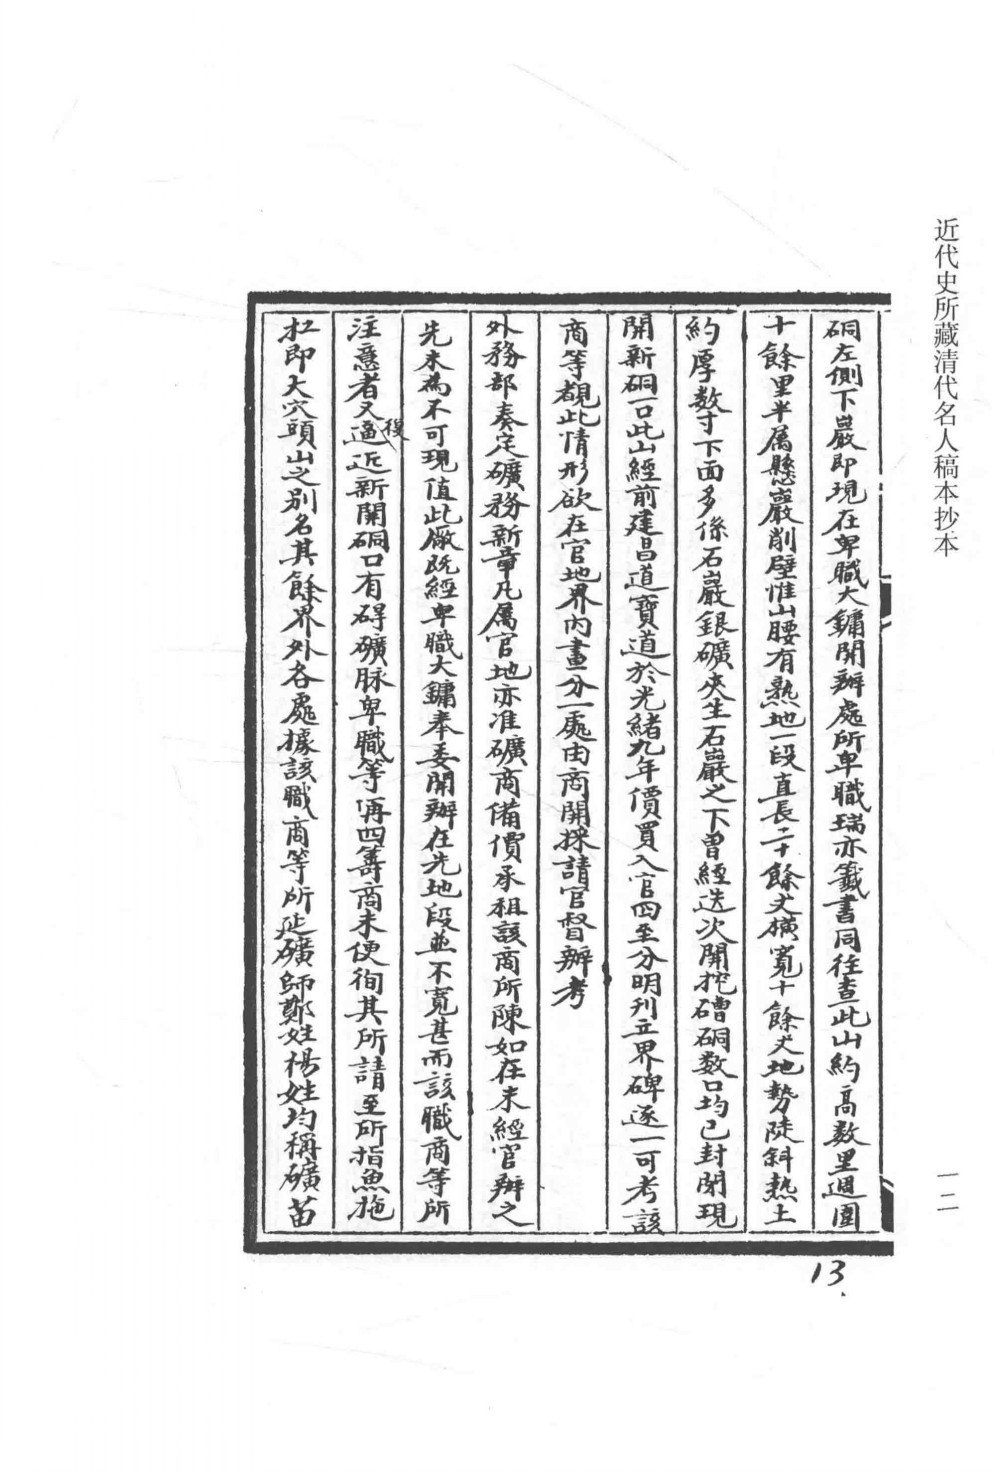 近代史所藏清代名人稿本抄本
一二
硐左側下巖即現在卑職大鏞開辦處所卑職瑞亦籤書同往查此山約高数里週圍
十餘里半属懸巖削壁惟山腰有熟地一段直長二十餘丈橫寬十餘丈地勢陡斜熱土
約厚数寸下面多係石巖銀礦夾生石巖之下曾經迭次開挖礦硐数口均已封閉現
開新硐一口此山經前建昌道寶道於光緒九年價買入官四至分明刊立界碑逐一可考該
商等覩此情形欲在官地界內畫分一處由商開採請官督辦考
外務部奏定礦務新章凡屬官地亦准礦商備價承租該商所陳如在未經官辦之
先未為不可現值此厰既經卑職大鏞奉委開辦在先地段並不寬甚而該職商等所
注意者又復逼近新開硐口有碍礦脉卑職等再四籌商未便徇其所請至所指魚拖
扛即大穴頭山之别名其餘界外各處據該職商等所延礦師鄭姓楊姓均稱礦苗
13